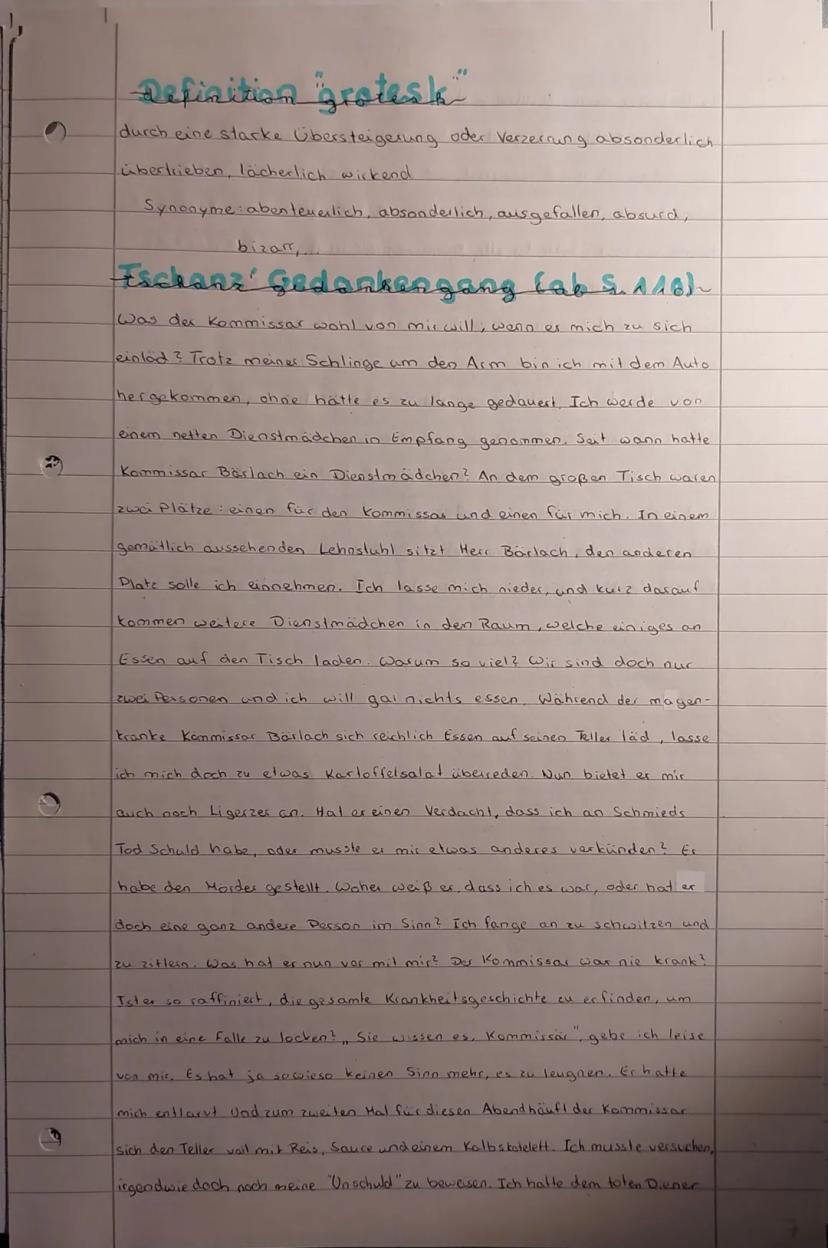 Definition "grotesk"
durch eine starke Übersteigerung oder Verzerrung absonderlich
übertrieben, lächerlich wirkend
Synonyme: abenteuerlich, absonderlich, ausgefallen, absurd,
bizarr,...
Tschanz' Gedankengang (ab S. 116)
Was der Kommissar wohl von mir will, wenn er mich zu sich
einläd? Trotz meiner Schlinge um den Arm bin ich mit dem Auto
hergekommen, ohne hätte es zu lange gedauert. Ich werde von
einem netten Dienstmädchen in Empfang genommen. Seit wann hatte
Kommissar Bärlach ein Dienstmädchen? An dem großen Tisch waren
zwei Plätze: einen für den Kommissar und einen für mich. In einem
gemütlich aussehenden Lehnstuhl sitzt Herr Bärlach, den anderen
Platz solle ich einnehmen. Ich lasse mich nieder, und kurz darauf
kommen weitere Dienstmädchen in den Raum, welche einiges an
Essen auf den Tisch laden. Warum so viel? Wir sind doch nur
zwei Personen und ich will gar nichts essen. Während der magen-
kranke Kommissar Bärlach sich reichlich Essen auf seinen Teller läd, lasse
ich mich doch zu etwas Kartoffelsalat überreden. Nun bietet er mir
auch noch Ligerzer an. Hat er einen Verdacht, dass ich an Schmieds
Tod Schuld habe, oder musste er mir etwas anderes verkünden? Er
habe den Mörder gestellt. Woher weiß er, dass ich es war, oder hat er
doch eine ganz andere Person im Sinn? Ich fange an zu schwitzen und
zu zittern. Was hat er nun vor mit mir? Der Kommissar war nie krank?
Ist er so raffiniert, die gesamte Krankheitsgeschichte zu erfinden, um
mich in eine Falle zu locken? „Sie wissen es, Kommissär", gebe ich leise
von mir. Es hat ja sowieso keinen Sinn mehr, es zu leugnen. Er hatte
mich entlarvt. Und zum zweiten Mal für diesen Abend häuft der Kommissar
sich den Teller voll mit Reis, Sauce und einem Kalbskotelett. Ich musste versuchen,
irgendwie doch noch meine "Unschuld" zu beweisen. Ich hatte dem toten Diener
7